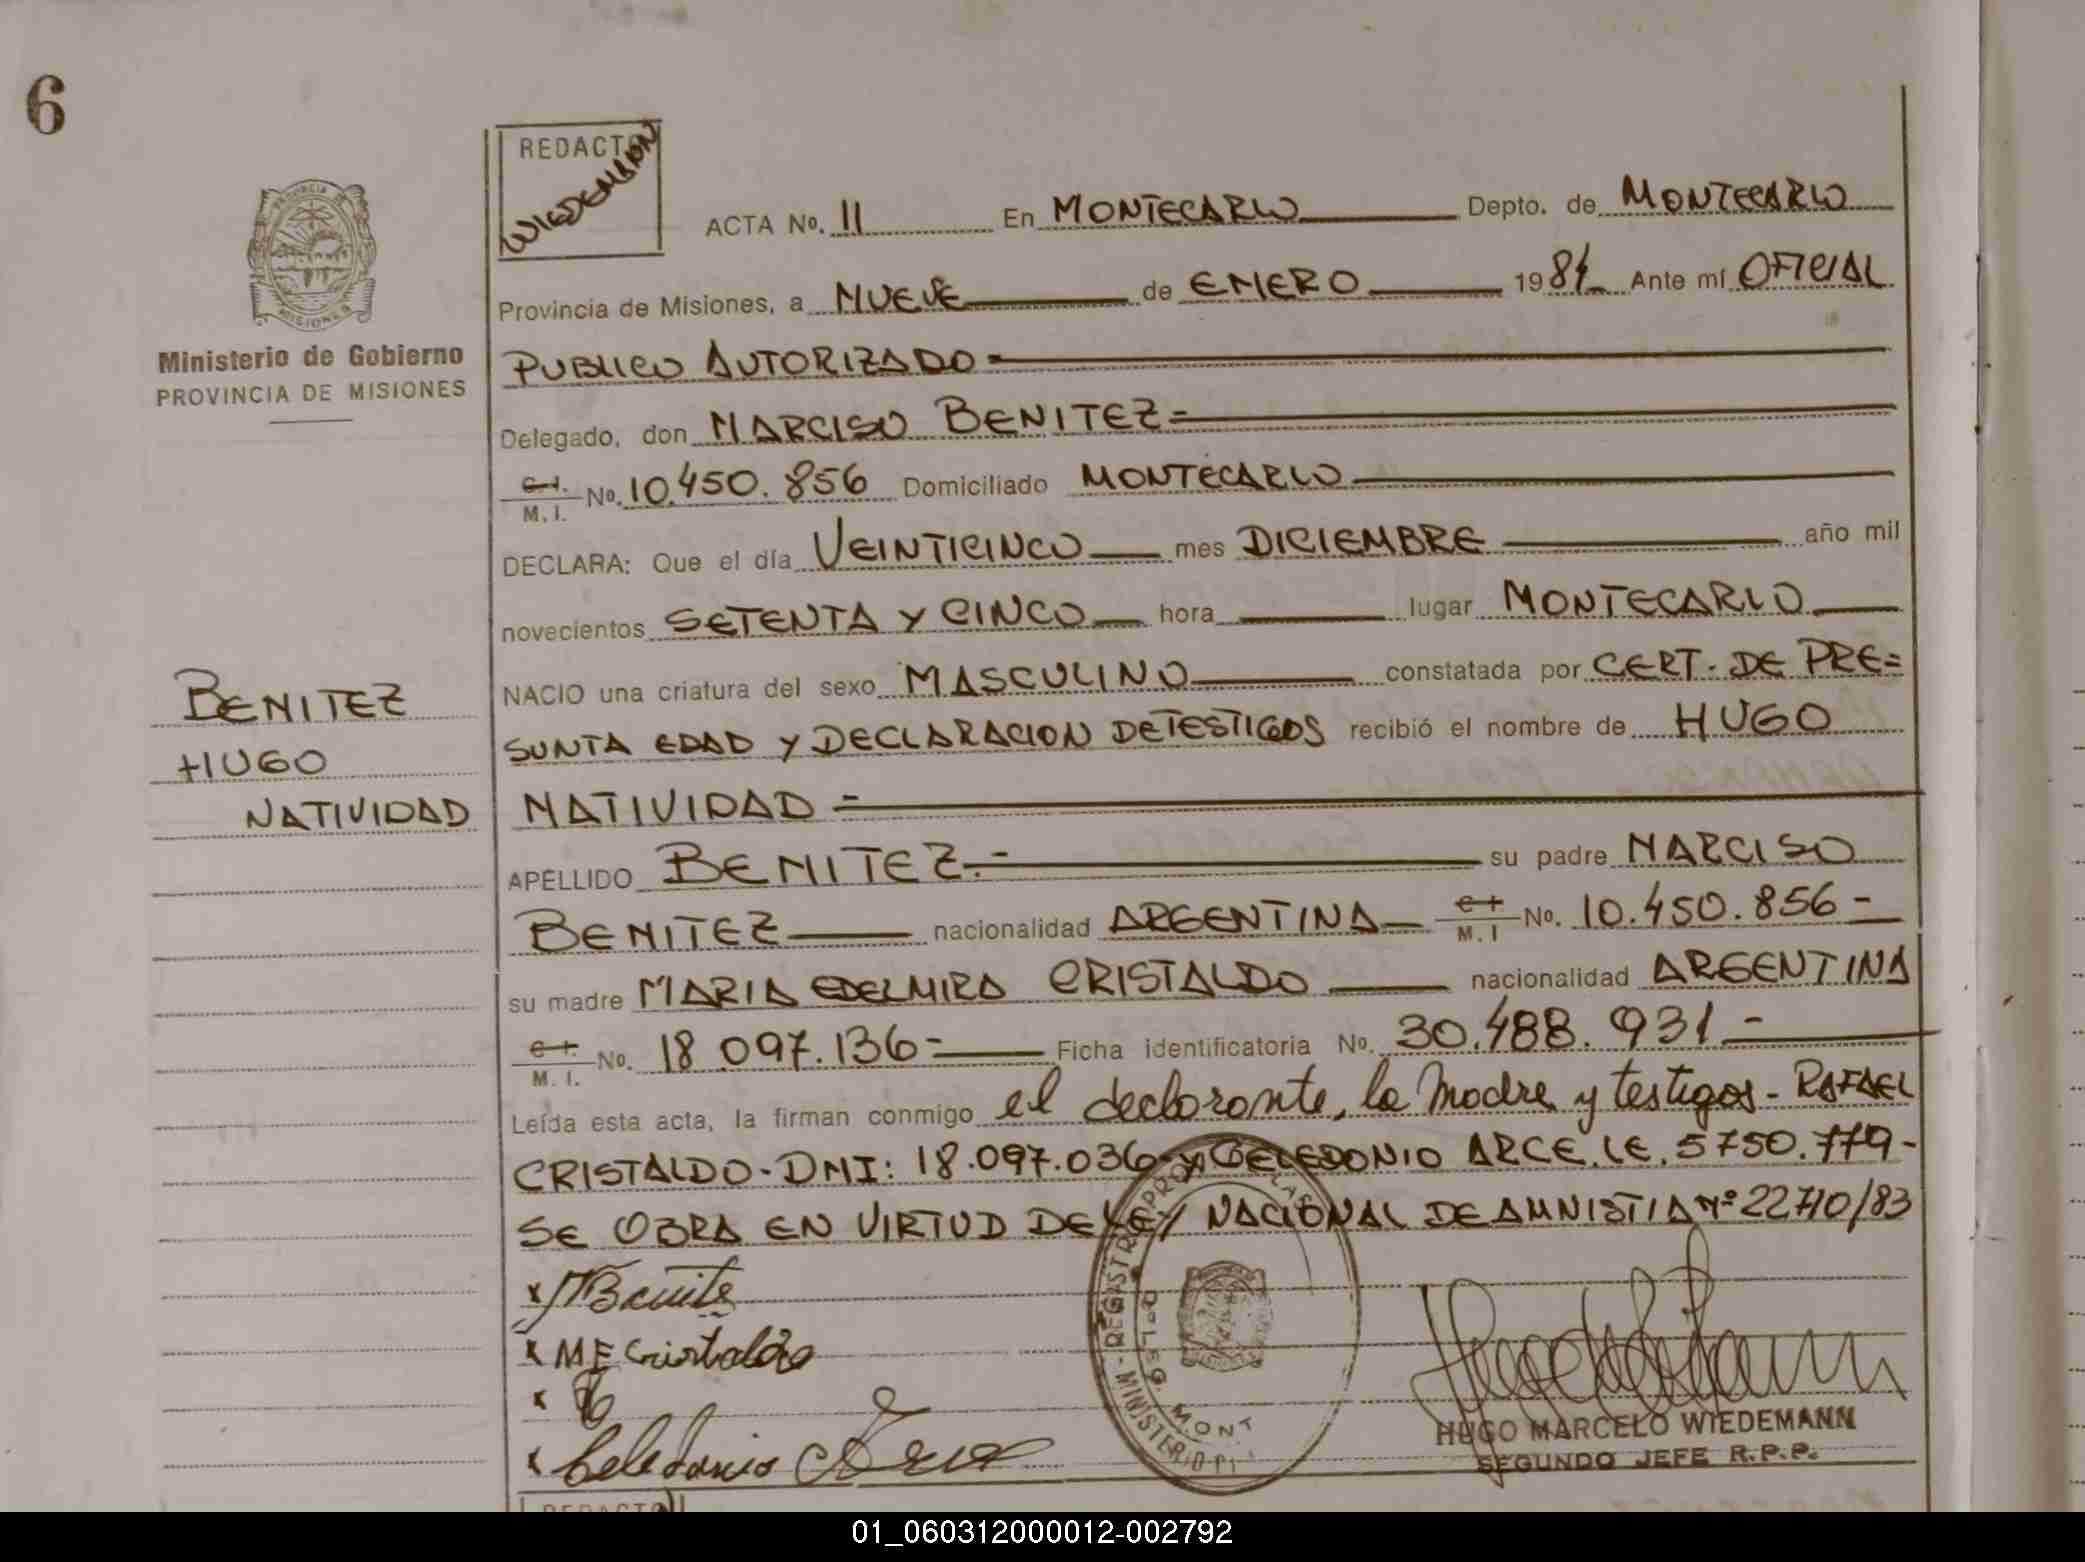 6
REDACTO
WIEDEMANN
ACTA No. 11 En MONTECARLO Depto. de MONTECARLO
Provincia de Misiones, a NUEVE de ENERO 1984 Ante mí OFICIAL
PUBLICO AUTORIZADO
Delegado, don NARCISO BENITEZ
C. I. M. I. No. 10.450.856 Domiciliado MONTECARLO
DECLARA: Que el día VEINTICINCO mes DICIEMBRE año mil
novecientos SETENTA Y CINCO hora lugar MONTECARLO
NACIO una criatura del sexo MASCULINO constatada por CERT. DE PRE=
SUNTA EDAD Y DECLARACION DE TESTIGOS recibió el nombre de HUGO
NATIVIDAD
APELLIDO BENITEZ.- su padre NARCISO
BENITEZ nacionalidad ARGENTINA C I M. I No. 10.450.856-
su madre MARIA EDELMIRA CRISTALDO nacionalidad ARGENTINA
C I. M. I. No. 18.097.136- Ficha identificatoria No. 30.488.931-
Leída esta acta, la firman conmigo el declarante, la madre y testigos- RAFAEL
CRISTALDO-DNI: 18.097.036 y CELEDONIO ARCE.LE.5750.779-
SE OBRA EN VIRTUD DE LEY NACIONAL DE AMNISTIA Nº 22710/83
x Benite
x M E Cristaldo
x
x Celedonio Arce
HUGO MARCELO WIEDEMANN
SEGUNDO JEFE R.P.P.
PROVINCIA DE
MISIONES
Ministerio de Gobierno
PROVINCIA DE MISIONES
BENITEZ
HUGO
NATIVIDAD
REDACTO
01_060312000012-002792